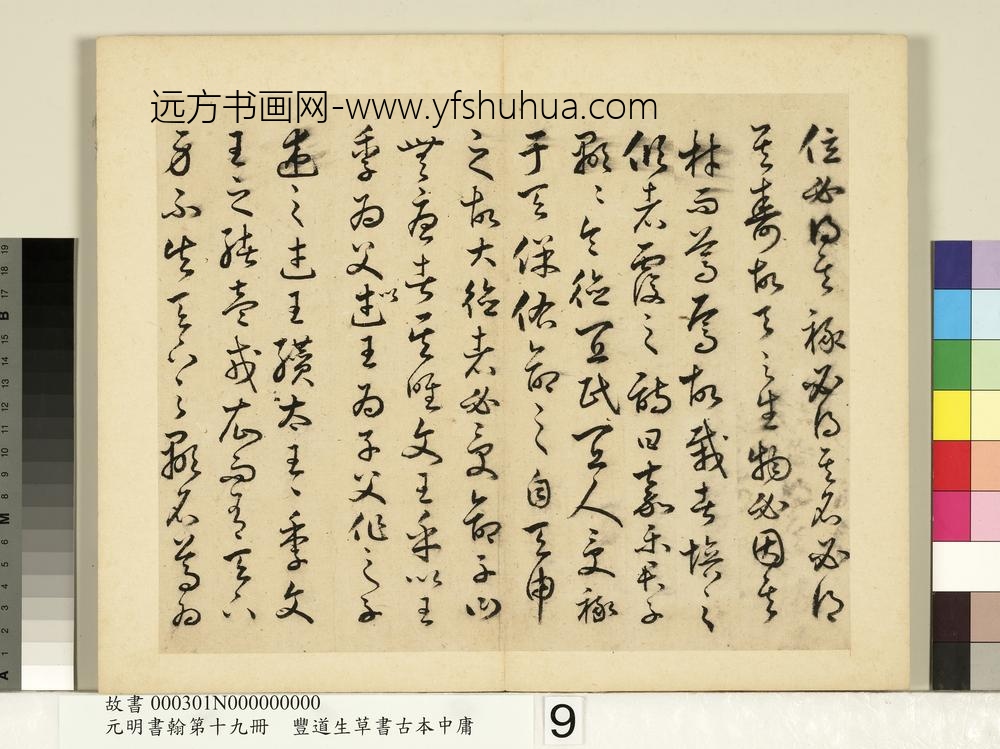 远方书画网-www.yfshuhua.com
位必得其祿必得其名必得
其壽故天之生物必因其
材而篤焉故栽者培之
傾者覆之詩曰嘉樂君子
顯〻令德宜民宜人受祿
于天保佑命之自天申
之故大德者必受命子曰
無憂者其唯文王乎以王
季為父以武王為子父作之子
述之武王纘太王〻季文
王之緒壹戎衣而有天下
身不失天下之顯名尊為
故書 000301N000000000
元明書翰第十九冊 豐道生草書古本中庸
9
A 1 2 3 4 5 6 M 8 9 10 11 12 13 14 15 B 17 18 19